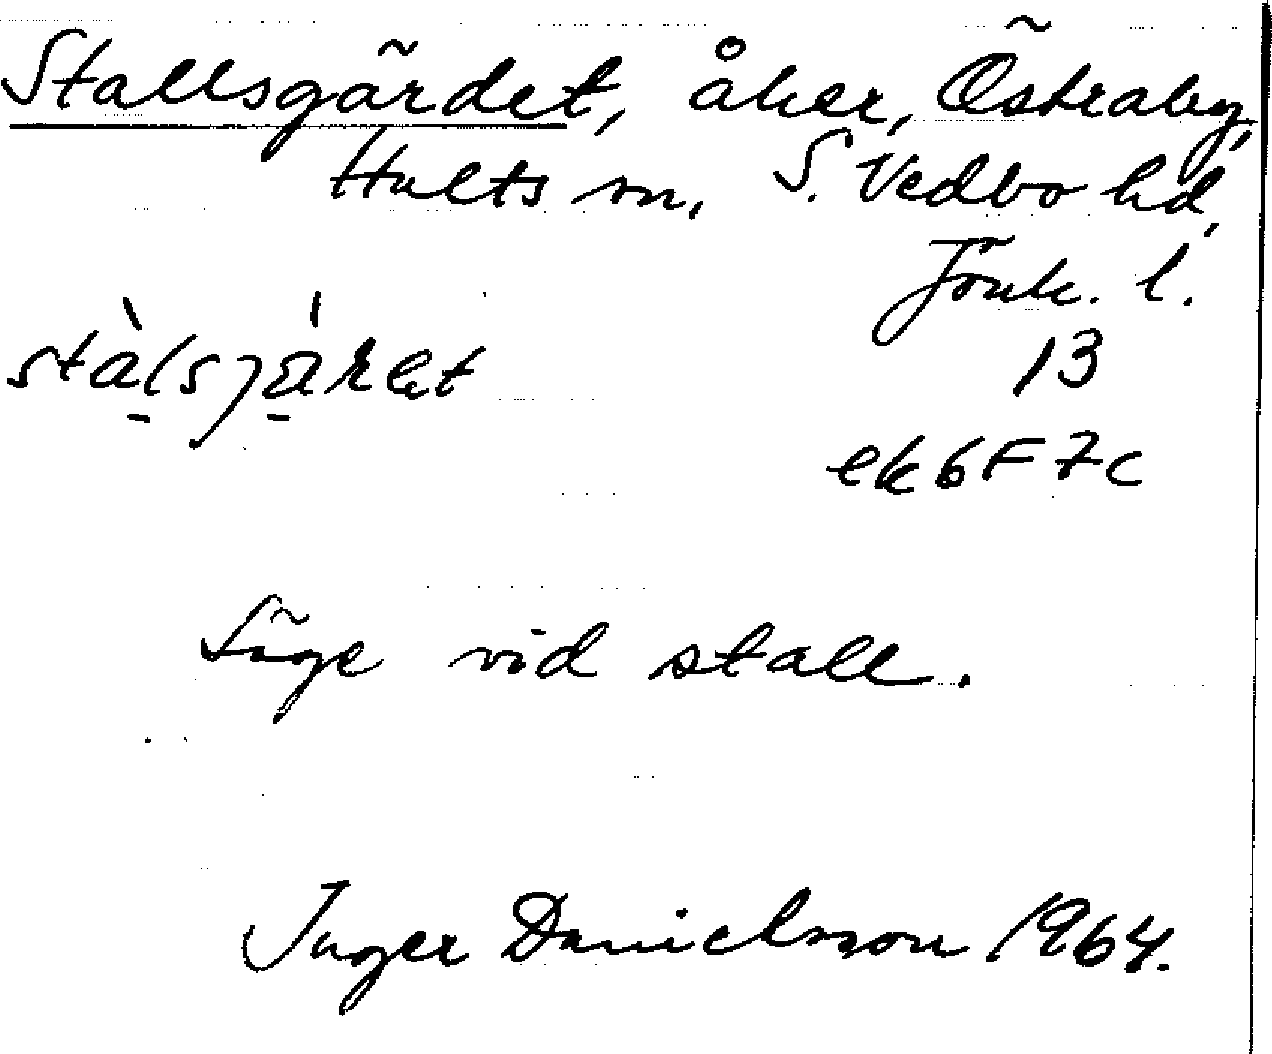 Stallsgärdet, åker, Östraby,
Hults sn, S. Vedbo hd,
Jönk. l.
13
ek 6F7c
Läge vid stall.
Inger Danielsson 1964.